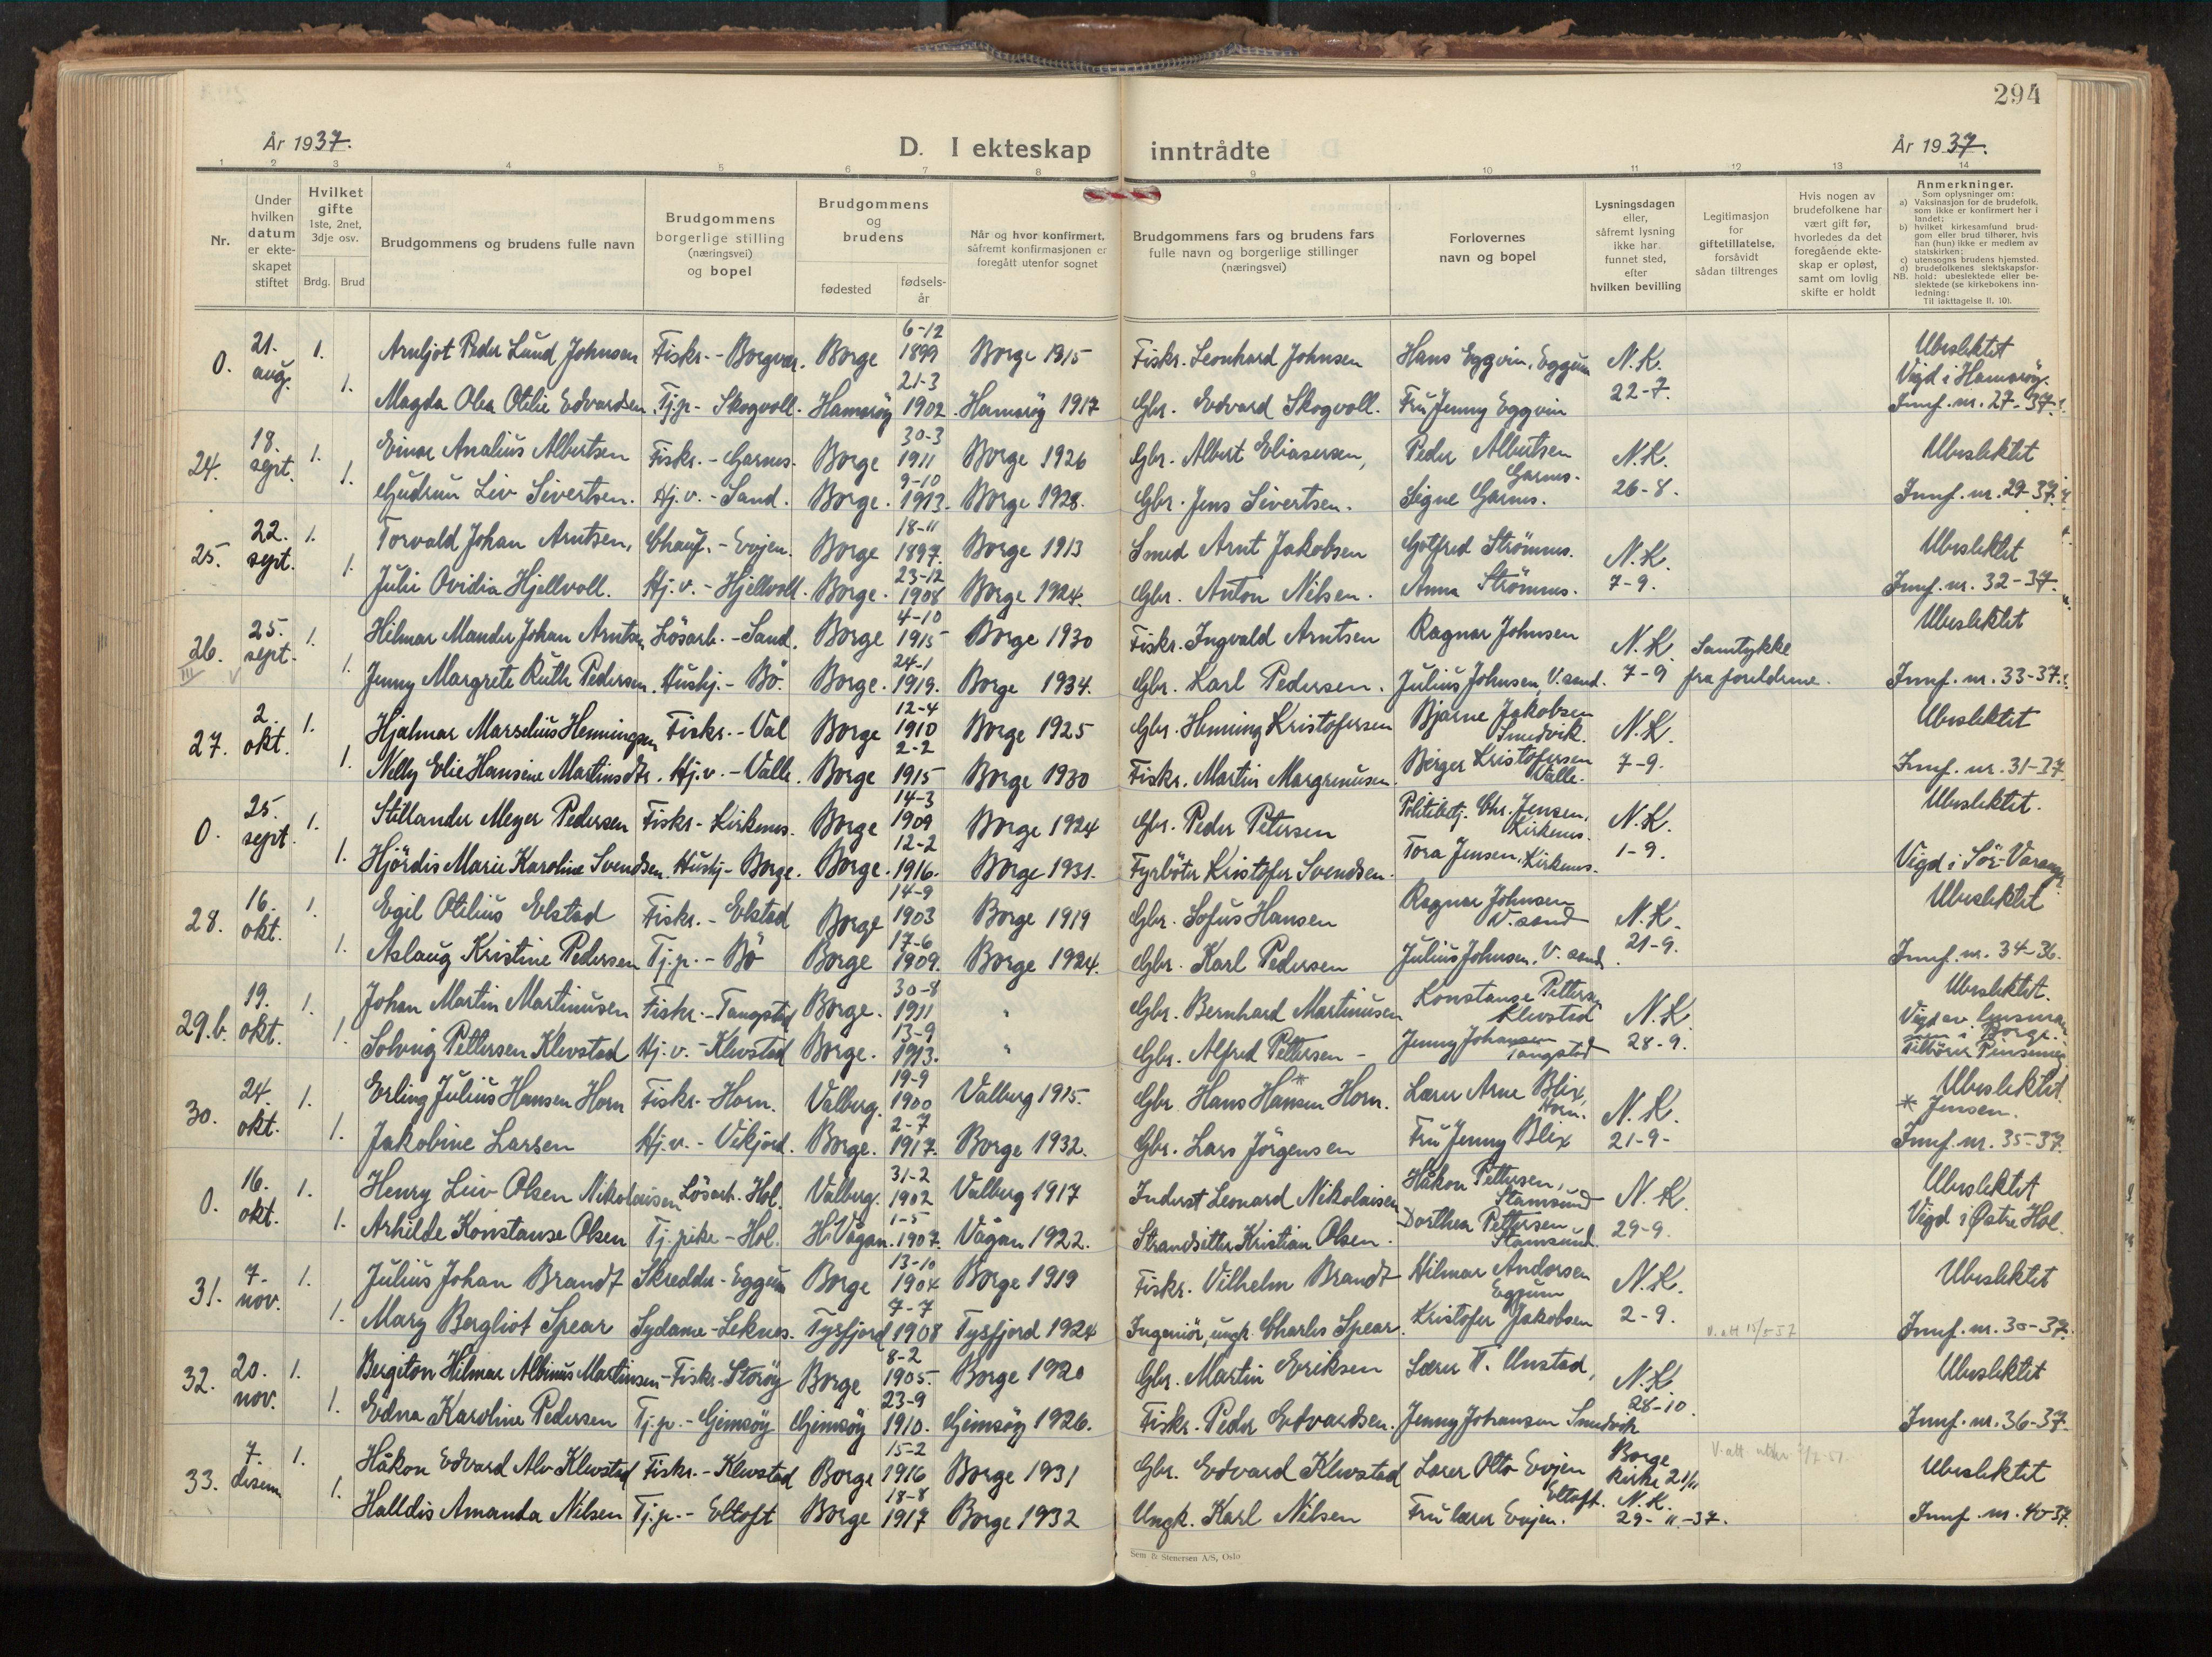 294
År 1937.
D. I ekteskap inntrådte
År 1937.
1 2 3 4 5 6 7 8 9 10 11 12 13 14
Nr.
Under hvilken datum er ekte-skapet stiftet
Hvilket gifte 1ste, 2net, 3dje osv.
Brdg. Brud
Brudgommens og brudens fulle navn
Brudgommens borgerlige stilling (næringsvei) og bopel
Brudgommens og brudens
fødested
fødsels-år
Når og hvor konfirmert, såfremt konfirmasjonen er foregått utenfor sognet
Brudgommens fars og brudens fars fulle navn og borgerlige stillinger (næringsvei)
Forlovernes navn og bopel
Lysningsdagen eller, såfremt lysning ikke har funnet sted, efter hvilken bevilling
Legitimasjon for giftetillatelse, forsåvidt sådan tiltrenges
Hvis nogen av brudefolkene har vært gift før, hvorledes da det foregående ekte-skap er opløst, samt om lovlig skifte er holdt
Anmerkninger.
Som oplysninger om:
a) Vaksinasjon for de brudefolk, som ikke er konfirmert her i landet;
b) hvilket kirkesamfund brud-gom eller brud tilhører, hvis han (hun) ikke er medlem av statskirken;
c) utensogns brudens hjemsted.
d) brudefolkenes slektskapsfor-hold: ubeslektede eller be-slektede (se kirkebokens inn-ledning:
NB. Til iakttagelse II. 10).
0. 21. aug. 1. Arnljot Peder Lund Johnsen Fiskr. - Borgvær. Borge 6-12 1899 Borge 1915 Fiskr. Leonhard Johnsen Hans Eggvin, Eggum N.K. 22-7. Ubeslektet
1. Magda Olea Otilie Edvardsen. Tj.p. - Skogvoll. Hamarøy 21-3 1902. Hamarøy 1917 Gbr. Edvard Skogvoll. Fru Jenny Eggvin Vigd i Hamarøy. Innf. nr. 27-37.
24. 18. sept. 1. Einar Analius Albertsen Fiskr. - Garnes. Borge 30-3 1911 Borge 1926 Gbr. Albert Eliasersen, Peder Albertsen Garnes. N.K. 26-8. Ubeslektet
1. Gudrun Liv Sivertsen. Hj.v. - Sand. Borge. 9-10 1913. Borge 1928. Gbr. Jens Sivertsen. Signe Garnes. Innf. nr. 29-37.
25. 22. sept. 1. Torvald Johan Arntsen, Chauf. - Evjen. Borge 18-11 1897. Borge 1913 Smed Arnt Jakobsen Gotfred Strömnes. N.K. 7-9. Ubeslektet
1. Julie Ovidia Hjellvoll. Hj.v. - Hjellvoll. Borge. 23-12 1908 Borge 1924. Gbr. Anton Nilsen. Anna Strömnes. Innf. nr. 32-37.
26. III 25. sept. 1. Hilmar Mander Johan Arntsen Lösarb. - Sand. Borge 4-10 1915 Borge 1930 Fiskr. Ingvald Arntsen Ragnar Johnsen N.K. 7-9 Samtykke fra foreldrene. Ubeslektet
1. Jenny Margrete Ruth Pedersen. Hushj. - Bö. Borge. 24-1 1919. Borge 1934. Gbr. Karl Pedersen. Julius Johnsen, V.sand. Innf. nr. 33-37.
27. 2. okt. 1. Hjalmar Marselius Henningsen Fiskr. - Val Borge 12-4 1910 Borge 1925 Gbr. Henning Kristofersen Bjarne Jakobsen Smedvik. N.K. 7-9. Ubeslektet
1. Nelly Elie Hansine Martinsdtr. Hj.v. - Valle. Borge 2-2 1915 Borge 1930 Fiskr. Martin Margrenusen. Birger Kristofersen Valle. Innf. nr. 31-37
0. 25. sept. 1. Stillander Meyer Pedersen Fiskr - Kirkenes. Borge 14-3 1909 Borge 1924 Gbr. Peder Petersen Politibetj. Chr. Jensen, Kirkenes. N.K. 1-9. Ubeslektet.
1. Hjördis Marie Karoline Svendsen. Hushj - Borge. Borge. 12-2 1916. Borge 1931. Fyrböter Kristofer Svendsen. Tora Jensen, Kirkenes. Vigd i Sör-Varanger
28. 16. okt. 1. Egil Otilius Elstad Fiskr. - Elstad Borge 14-9 1903 Borge 1919 Gbr. Sofus Hansen Ragnar Johnsen V.sand N.K. 21-9. Ubeslektet
1. Aslaug Kristine Pedersen Tj.p. - Bö Borge 17-6 1909. Borge 1924. Gbr. Karl Pedersen Julius Johnsen, V. sand Innf. nr. 34-36.
29.b. 19. okt. 1. Johan Martin Martinusen Fiskr. - Tangstad Borge. 30-8 1911 " Gbr. Bernhard Martinusen Konstanse Petters. Klevstad N.K. 28-9. Ubeslektet.
1. Solveig Pettersen Klevstad Hj.v. - Klevstad Borge. 13-9 1913. " Gbr. Alfred Pettersen - Jenny Johansen Tangstad Vigd av lensmannen i Borge. Tilhörer Pinsemen.
30. 24. okt. 1. Erling Julius Hansen Horn Fiskr - Horn. Valberg. 19-9 1900 Valberg 1915. Gbr. Hans Hansen* Horn. Lærer Arne Blix, Horn. N.K. 21-9- Ubeslektet * Jensen.
1. Jakobine Larsen Hj.v. - Vikjord. Borge. 2-7 1917. Borge 1932. Gbr. Lars Jörgensen Fru Jenny Blix Innf. nr. 35-37.
0. 16. okt. 1. Henry Liev Olsen Nikolaisen Lösarb. Hol. Valberg. 31-2 1902 Valberg 1917 Inderst Leonard Nikolaisen Håkon Pettersen, Stamsund N.K. 29-9. Ubeslektet
1. Arhilde Konstanse Olsen Tj.pike - Hol. H. Vågan. 1-5 1907. Vågan 1922. Strandsitter Kristian Olsen. Dorthea Pettersen Stamsund. Vigd i Østre Hol
31. 7. nov. 1. Julius Johan Brandt Skredder - Eggum Borge 13-10 1904 Borge 1919 Fiskr. Vilhelm Brandt Hilmar Andorsen Eggum N.K. 2-9. Ubeslektet
1. Mary Bergliot Spear Sydame - Leknes. Tysfjord 7-7 1908 Tysfjord 1924 Ingeniör, ungk. Charles Spear. Kristofer Jakobsen V. att 15/5 57 Innf. nr. 30-37.
32. 20. nov. 1. Bergiton Hilmar Albinus Martinsen - Fiskr. Storöy Borge 8-2 1905. Borge 1920 Gbr. Martin Eriksen Lærer T. Unstad, N.K. 28-10. Ubeslektet
1. Edna Karoline Pedersen Tj.p. - Gimsöy Gimsöy 23-9 1910. Gimsöy 1926. Fiskr. Peder Edvardsen. Jenny Johansen Smedvik Innf. nr. 36-37.
33. 7. desem 1. Håkon Edvard Alv Klevstad Fiskr. - Klevstad Borge 15-2 1916 Borge 1931 Gbr. Edvard Klevstad Lærer Otto Evjen Eltoft. Borge kirke 21/11 N.K. 29-11-37. V. att. Ubeslektet
1. Halldis Amanda Nilsen Tj.p. - Eltoft Borge 18-8 1917 Borge 1932 Ungk. Karl Nilsen Fru lærer Evjen. Innf. nr. 40-37.
Sem & Stenersen A/S, Oslo